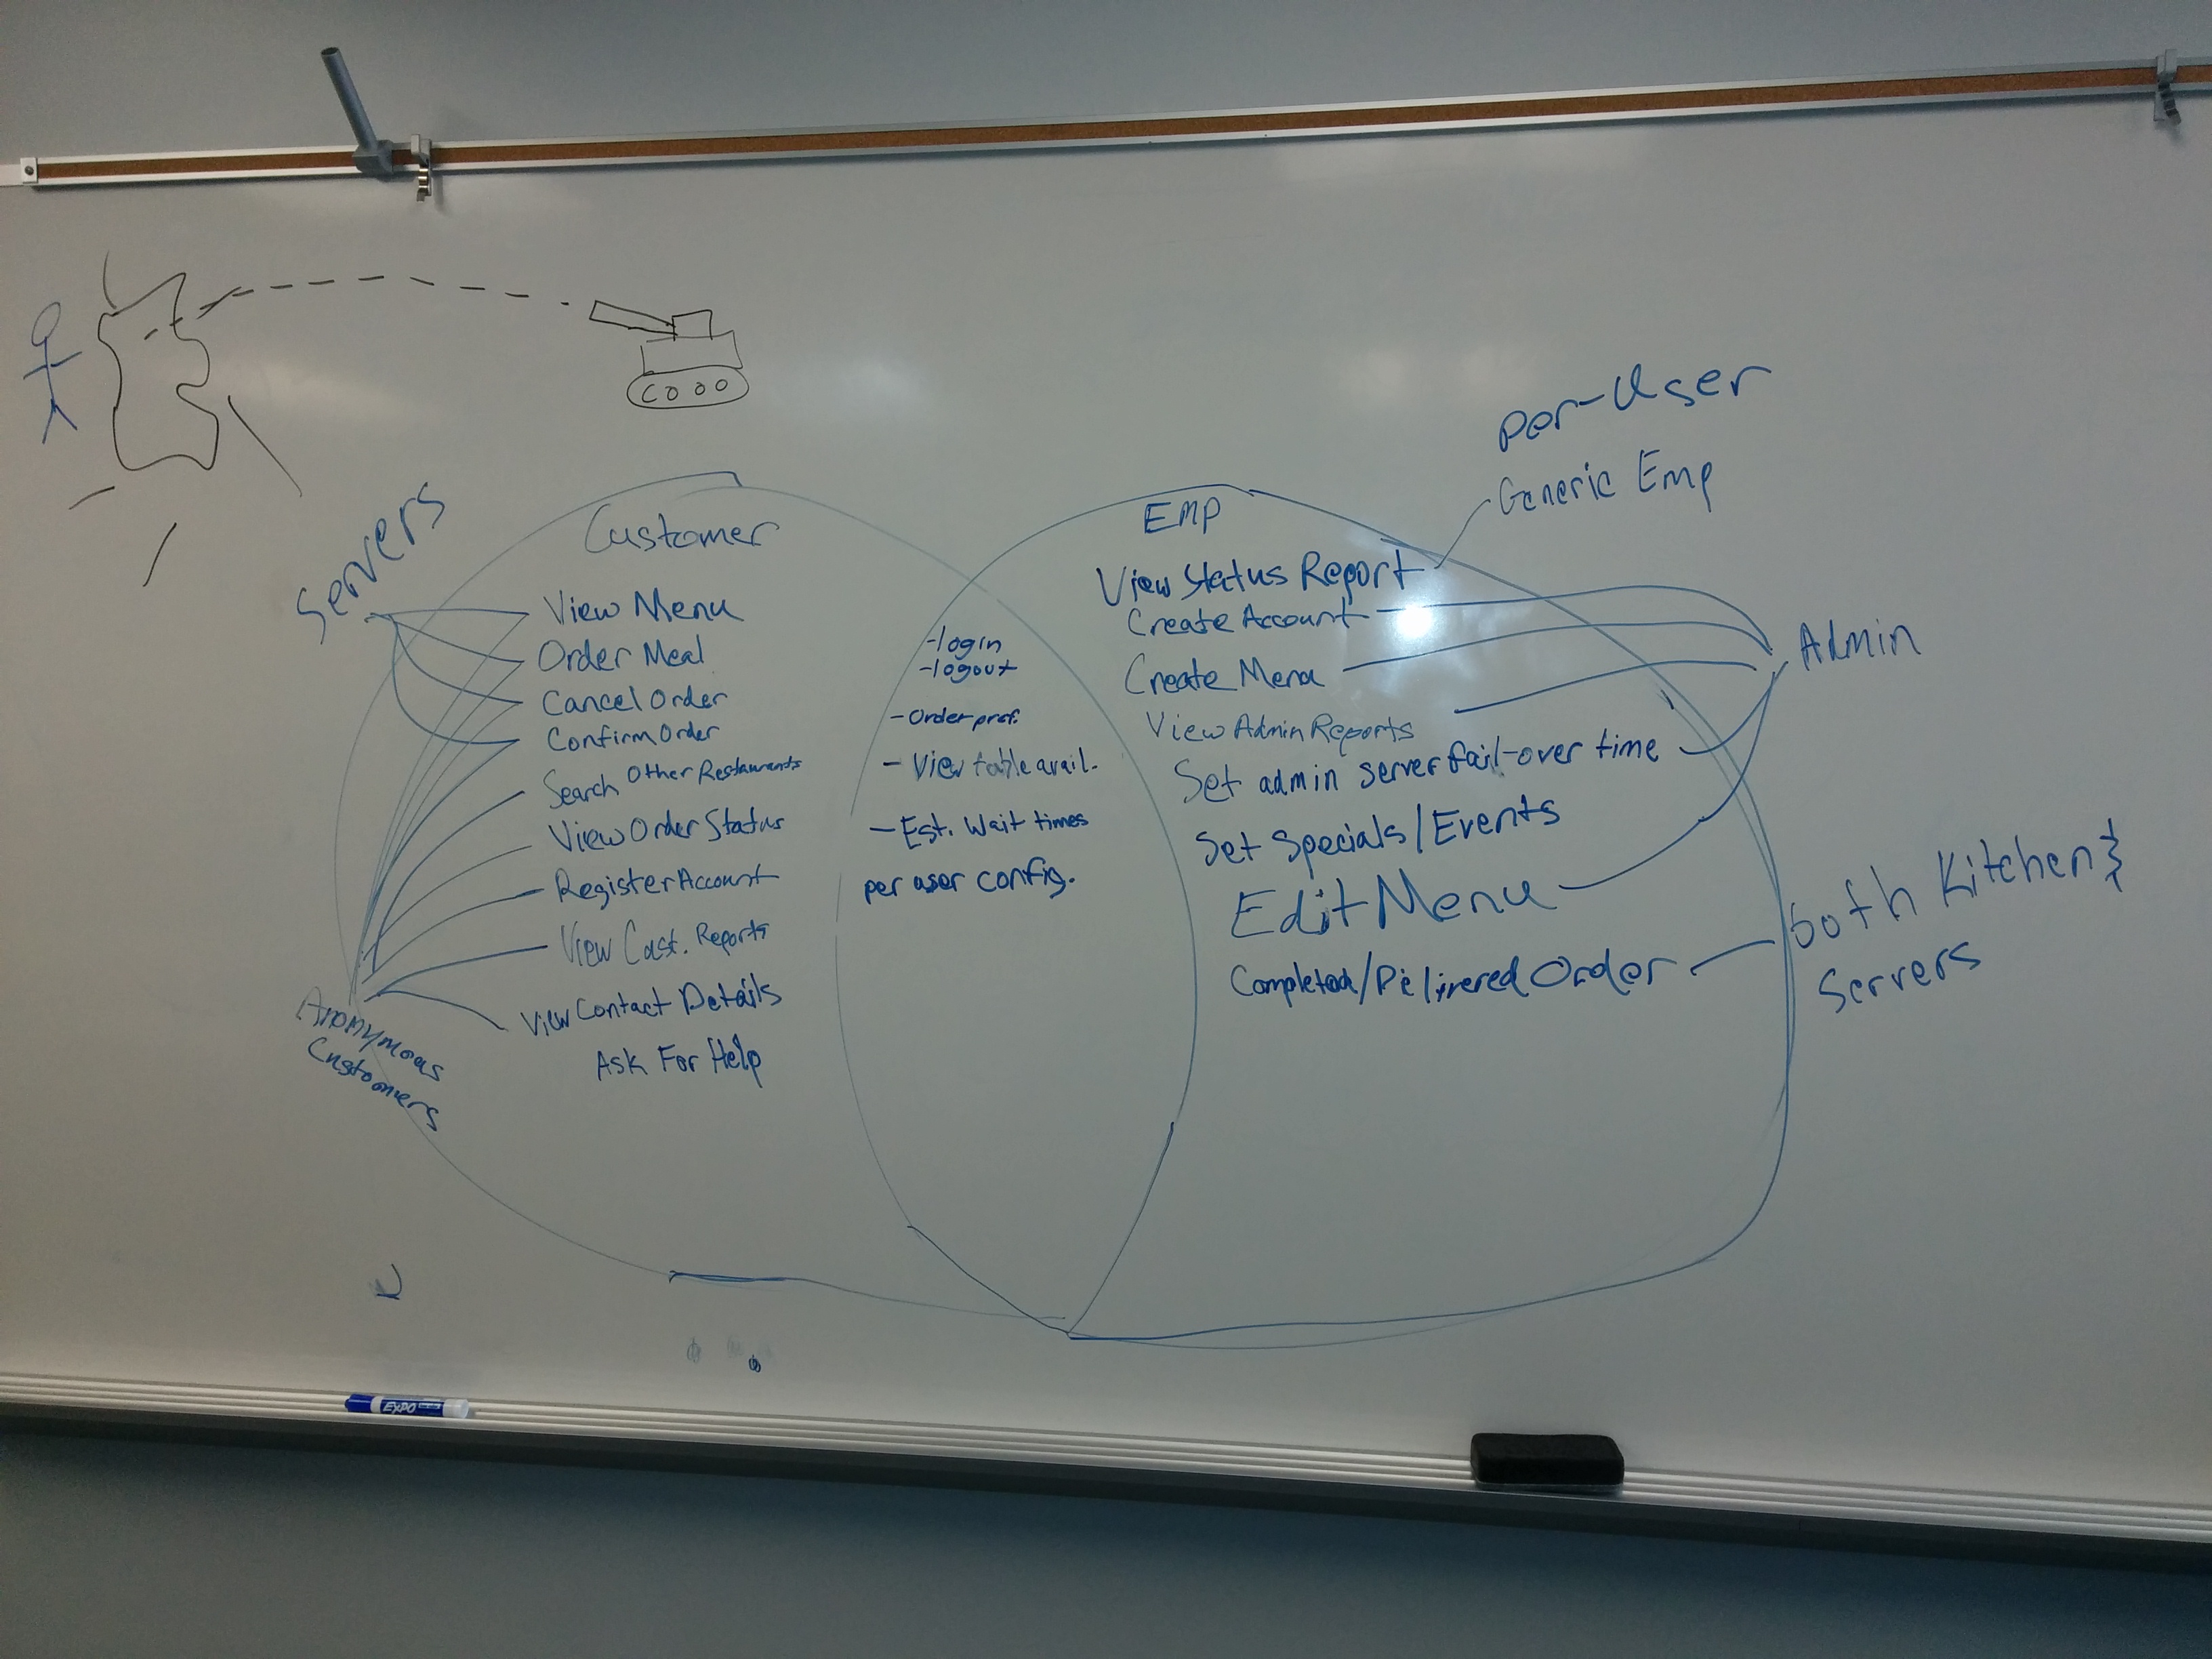 per-User
Generic Emp
Servers
Customer
View Menu
Order Meal
Cancel Order
Confirm Order
Search Other Restaurants
View Order Status
Register Account
View Cust. Reports
View Contact Details
Ask For Help
Anonymous
Customers
-login
-logout
-Order pref.
- View table avail.
- Est. Wait times
per user config.
Emp
View Status Report
Create Account
Create Menu
View Admin Reports
Set admin server fail-over time
Set Specials/Events
Edit Menu
Completed/Delivered Order
Admin
both Kitchen &
Servers
EXPO